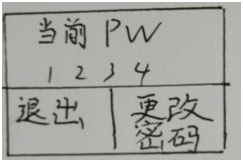 当前 PW
1 2 3 4
退出
更改
密码